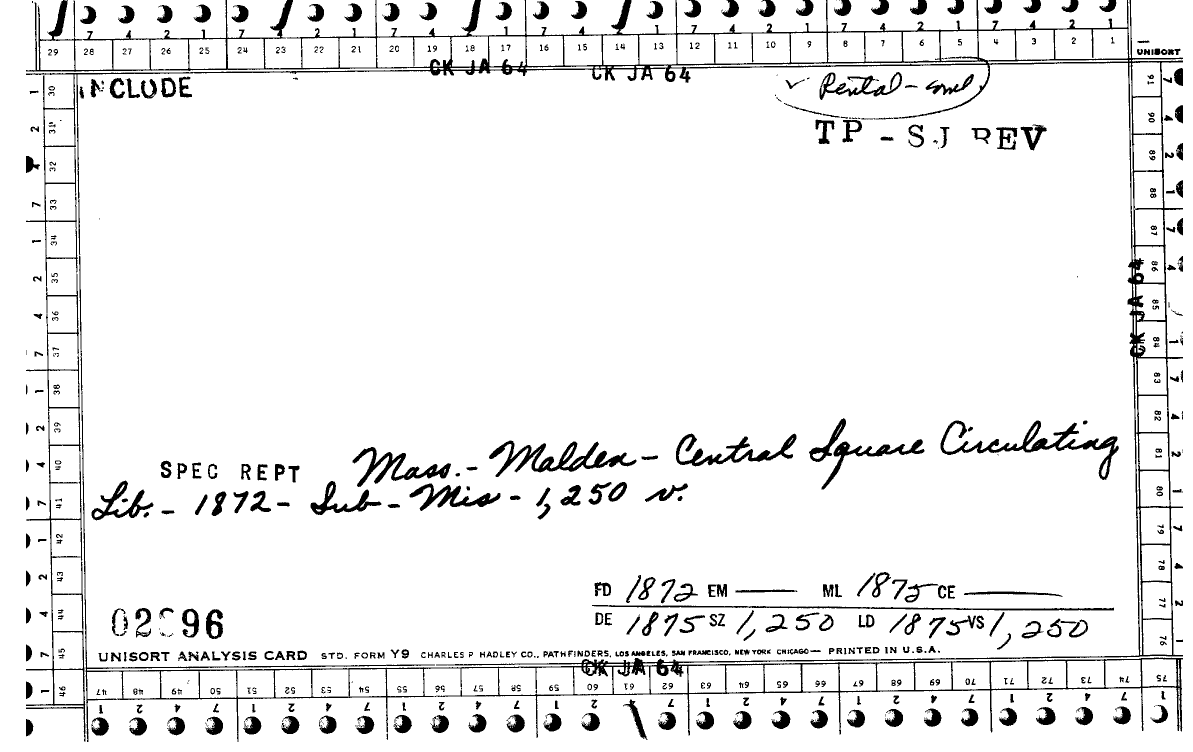 7 4 2 1 7 4 2 1 7 4 2 1 7 4 2 1 7 4 2 1 7 4 2 1 7 4 2 1
29 28 27 26 25 24 23 22 21 20 19 18 17 16 15 14 13 12 11 10 9 8 7 6 5 4 3 2 1 UNISORT
CK JA 64 CK JA 64
INCLUDE
✓ Rental -
TP - SJ REV
1 2 4 7 1 2 4 7 1 2 4 7 1 2 4 7 1
30 31 32 33 34 35 36 37 38 39 40 41 42 43 44 45 46
91 90 89 88 87 86 85 84 83 82 81 80 79 78 77 76
CK JA 64
SPEC REPT Mass. - Malden - Central Square Circulating
Lib. - 1872 - Sub - Mis - 1,250 v.
FD 1872 EM —— ML 1875 CE ——
DE 1875 SZ 1,250 LD 1875 VS 1,250
96
UNISORT ANALYSIS CARD STD. FORM Y9 CHARLES P HADLEY CO., PATHFINDERS, LOS ANGELES, SAN FRANCISCO, NEW YORK CHICAGO — PRINTED IN U.S.A.
CK JA 64
47 48 49 50 51 52 53 54 55 56 57 58 59 60 61 62 63 64 65 66 67 68 69 70 71 72 73 74 75
1 2 4 7 1 2 4 7 1 2 4 7 1 2 7 1 2 4 7 1 2 4 7 1 2 4 7 1